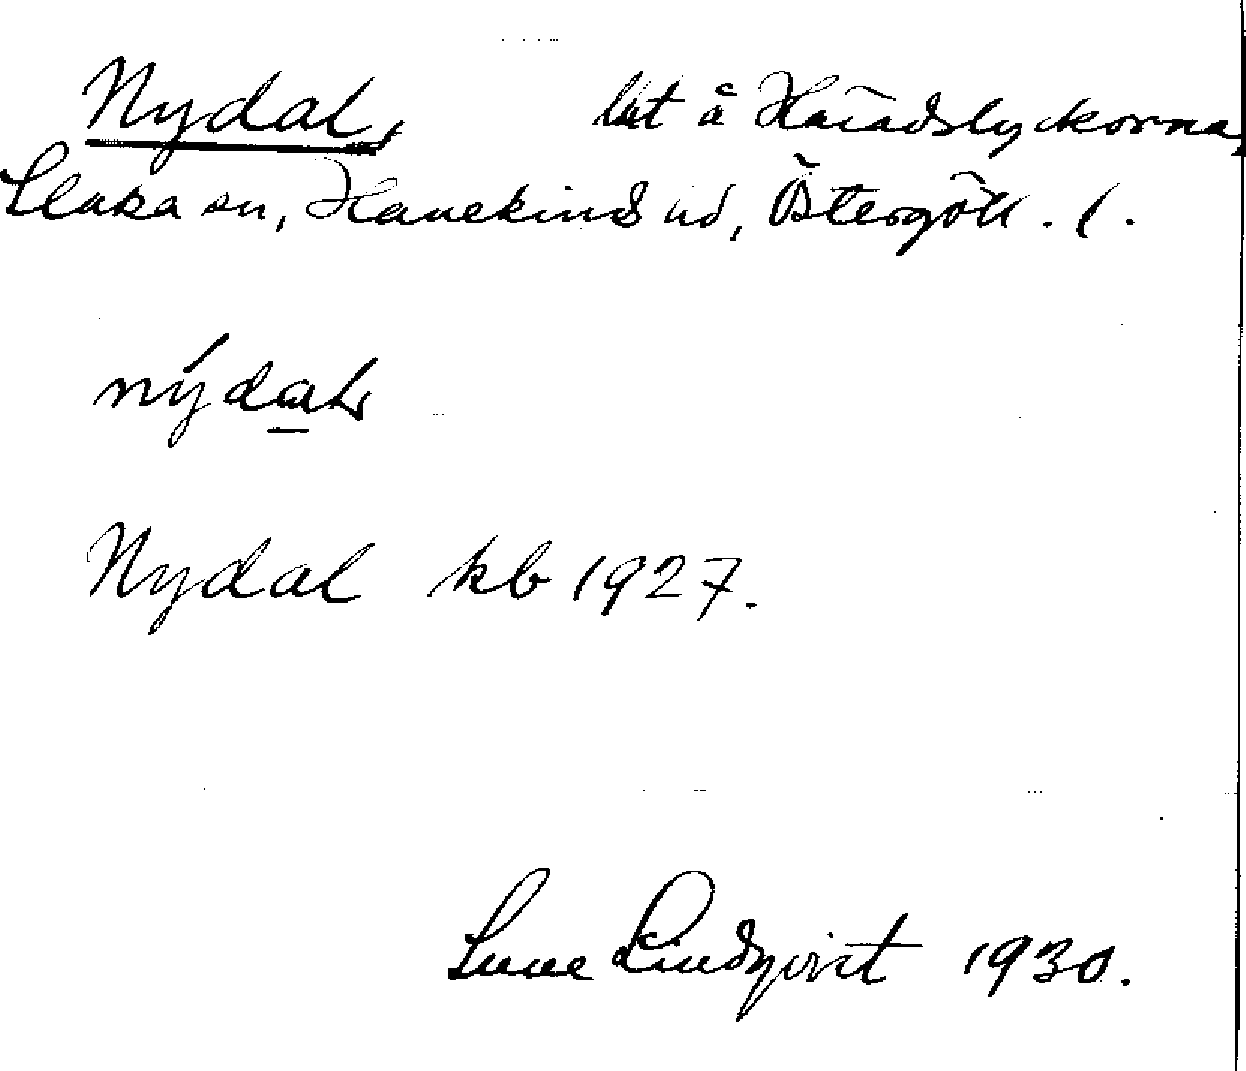 Nydal, lht å Häradslyckorna,
Slaka sn, Hanekinds hd, Östergötl. l.
nýdal
Nydal kb 1927.
Sune Lindqvist 1930.